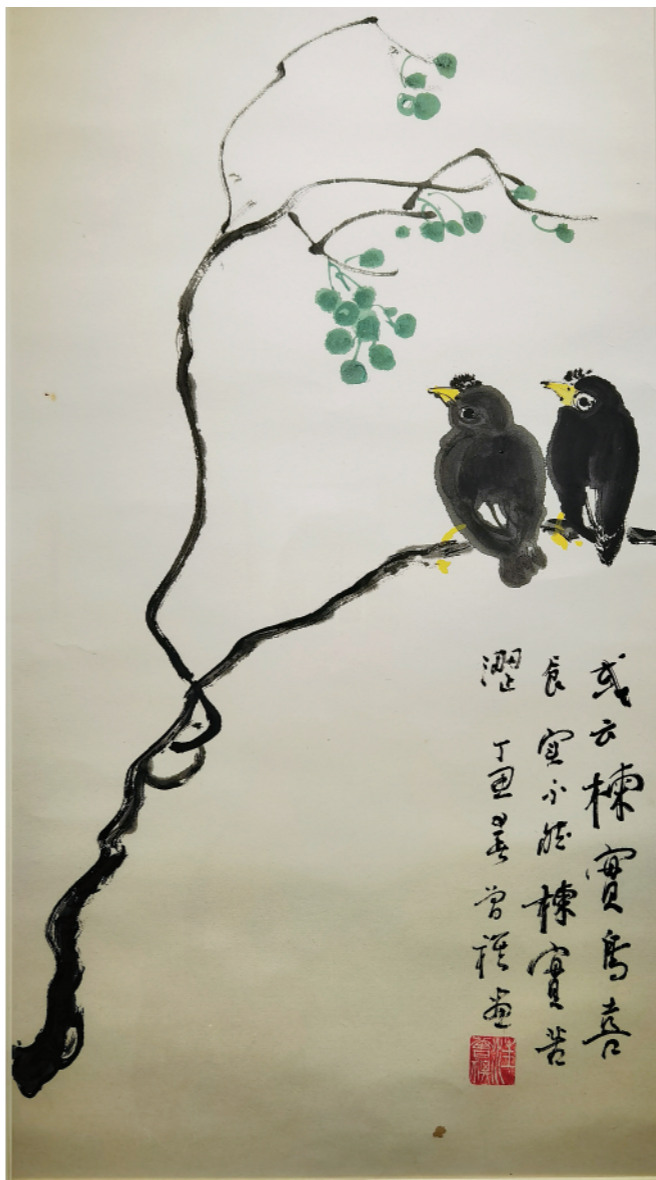 或云楝實鳥喜
食實不然楝實苦
澀 丁丑春曾祺畫
汪曾祺